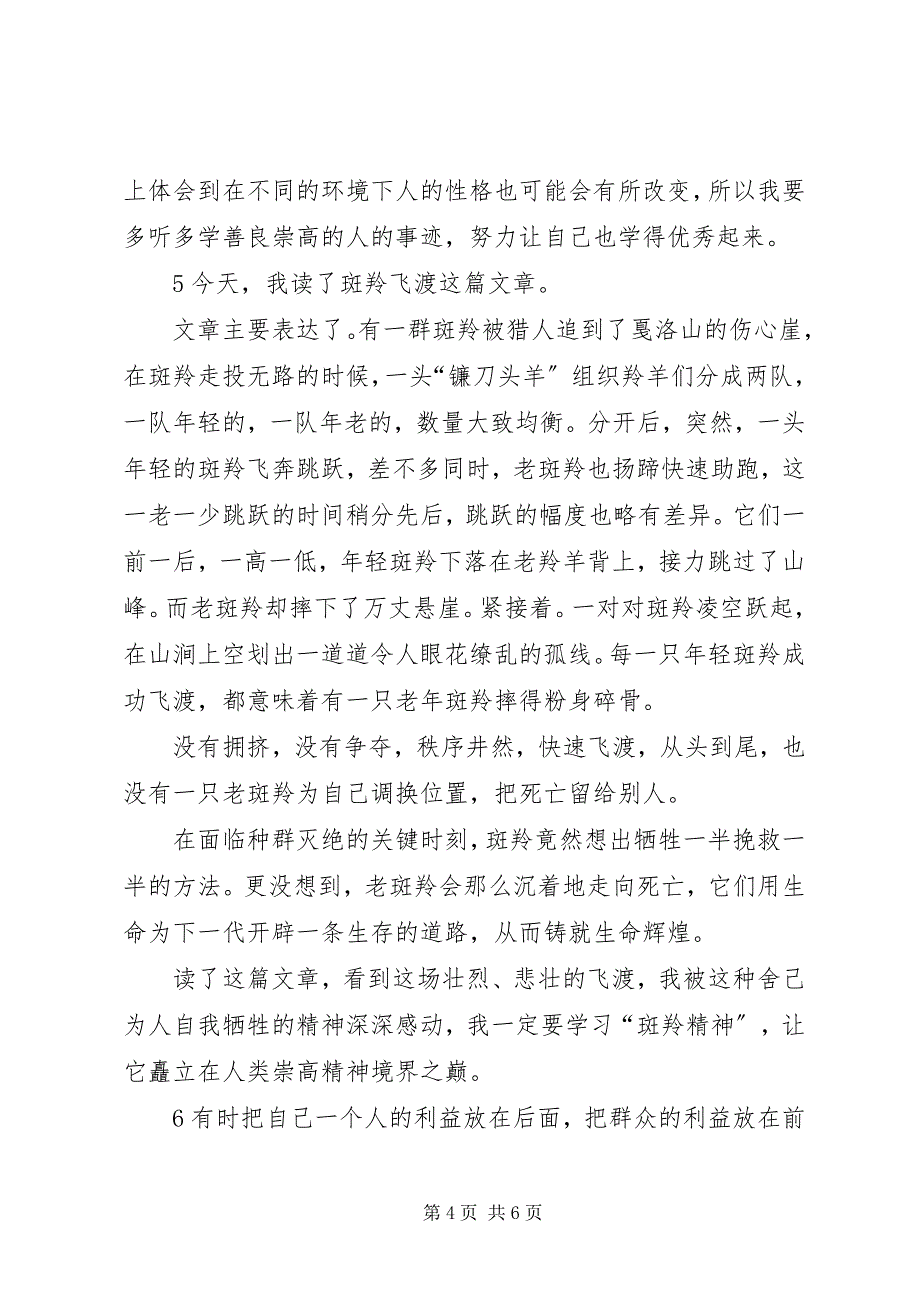 上体会到在不同的环境下人的性格也可能会有所改变，所以我要
多听多学善良崇高的人的事迹，努力让自己也学得优秀起来。
5 今天，我读了斑羚飞渡这篇文章。
文章主要表达了。有一群斑羚被猎人追到了戛洛山的伤心崖，
在斑羚走投无路的时候，一头“镰刀头羊〞组织羚羊们分成两队，
一队年轻的，一队年老的，数量大致均衡。分开后，突然，一头
年轻的斑羚飞奔跳跃，差不多同时，老斑羚也扬蹄快速助跑，这
一老一少跳跃的时间稍分先后，跳跃的幅度也略有差异。它们一
前一后，一高一低，年轻斑羚下落在老羚羊背上，接力跳过了山
峰。而老斑羚却摔下了万丈悬崖。紧接着。一对对斑羚凌空跃起，
在山涧上空划出一道道令人眼花缭乱的孤线。每一只年轻斑羚成
功飞渡，都意味着有一只老年斑羚摔得粉身碎骨。
没有拥挤，没有争夺，秩序井然，快速飞渡，从头到尾，也
没有一只老斑羚为自己调换位置，把死亡留给别人。
在面临种群灭绝的关键时刻，斑羚竟然想出牺牲一半挽救一
半的方法。更没想到，老斑羚会那么沉着地走向死亡，它们用生
命为下一代开辟一条生存的道路，从而铸就生命辉煌。
读了这篇文章，看到这场壮烈、悲壮的飞渡，我被这种舍己
为人自我牺牲的精神深深感动，我一定要学习“斑羚精神〞，让
它矗立在人类崇高精神境界之巅。
6 有时把自己一个人的利益放在后面，把群众的利益放在前
第 4 页 共 6 页